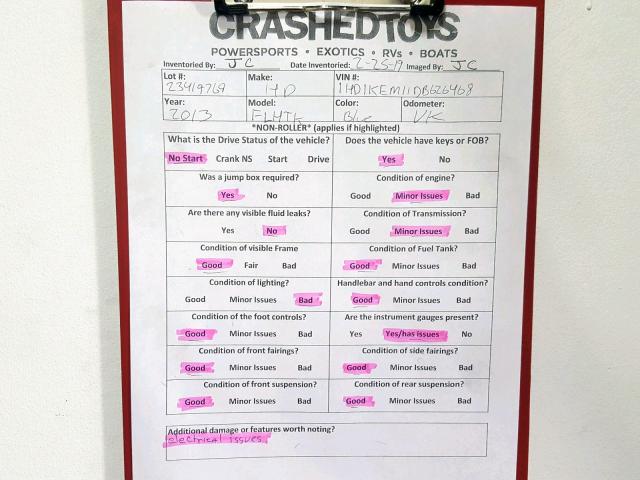 CRASHEDTOYS
POWERSPORTS • EXOTICS • RVs • BOATS
Inventoried By: JC Date Inventoried: 2-25-19 Imaged By: JC
Lot #: Make: VIN #:
23419769 HD 1HD1KEM11DB626468
Year: Model: Color: Odometer:
2013 FLHTK Blue UK
*NON-ROLLER* (applies if highlighted)
What is the Drive Status of the vehicle? Does the vehicle have keys or FOB?
No Start Crank NS Start Drive Yes No
Was a jump box required? Condition of engine?
Yes No Good Minor Issues Bad
Are there any visible fluid leaks? Condition of Transmission?
Yes No Good Minor Issues Bad
Condition of visible Frame Condition of Fuel Tank?
Good Fair Bad Good Minor Issues Bad
Condition of lighting? Handlebar and hand controls condition?
Good Minor Issues Bad Good Minor Issues Bad
Condition of the foot controls? Are the instrument gauges present?
Good Minor Issues Bad Yes Yes/has issues No
Condition of front fairings? Condition of side fairings?
Good Minor Issues Bad Good Minor Issues Bad
Condition of front suspension? Condition of rear suspension?
Good Minor Issues Bad Good Minor Issues Bad
Additional damage or features worth noting?
electrical issues